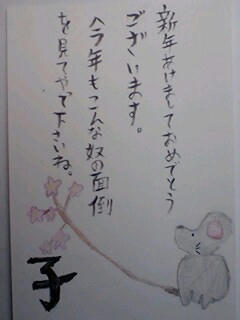 新年あけましておめでとう
ございます。
今年もこんな奴の面倒
を見てやって下さいね。
子